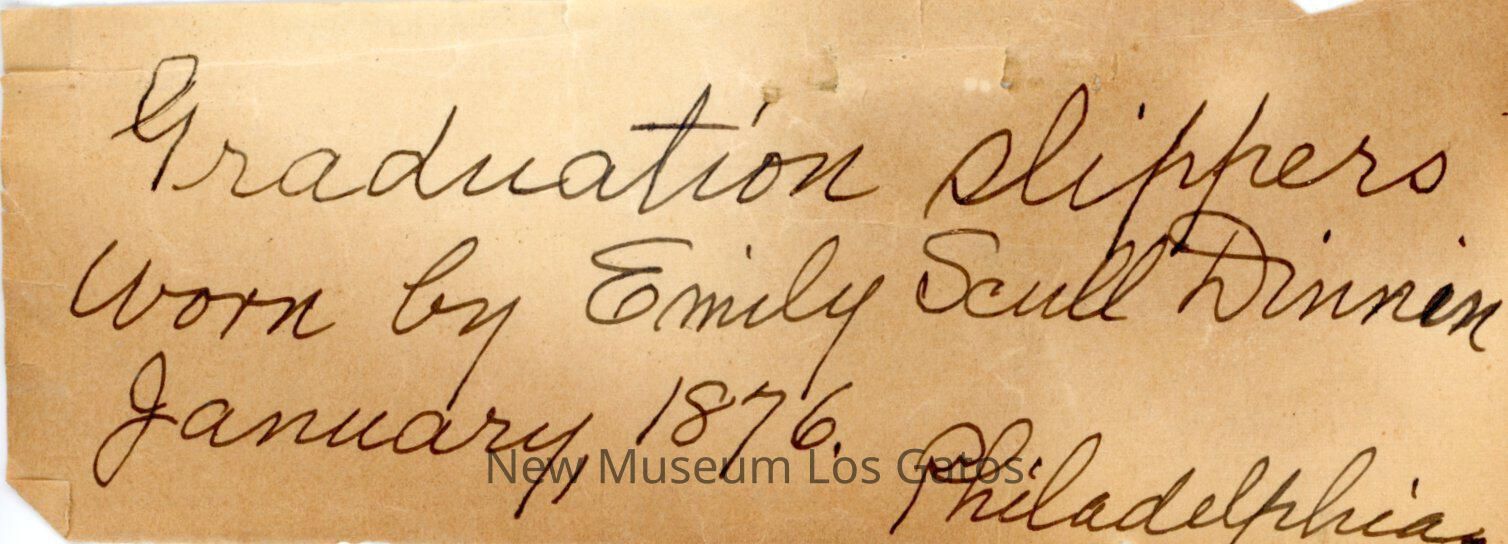 Graduation slippers
worn by Emily Scull Dinnin
January, 1876.
New Museum Los Gatos
Philadelphia